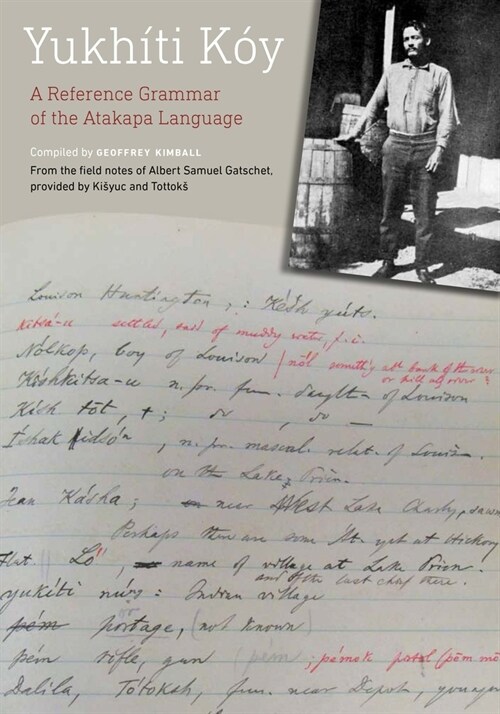 Yukhíti Kóy
A Reference Grammar
of the Atakapa Language
Compiled by GEOFFREY KIMBALL
From the field notes of Albert Samuel Gatschet,
provided by Kišyuc and Tottokš
Louison Huntington; : Késh yúts.
Kitsá-u settled, said of muddy water, f. i.
Nólkop, boy of Louison / nól
Kíshkitsa-u n. pr. fem. daught- of Louison
Kísh tót, +;
Íshak n. pr. mascul. relat. of
on the Lake, Prien.
Jean Kásha; near West Lake Charley,
Perhaps there are some Át. yet at Hickory
Flat. Ló, name of village at Lake Prien.
and of the last chief there.
yukíti : Indian village
pém portage, (not known)
pém rifle, gun (pém; pámak
Dalíla, Tótoksh, fem. near Depot, younger